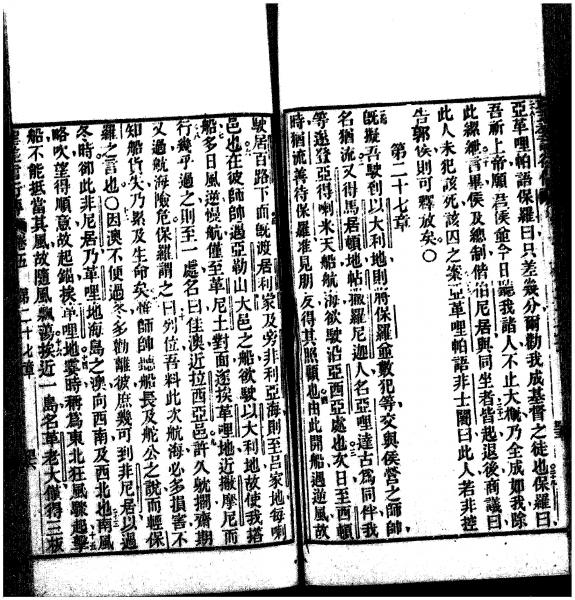 亞革哩帕語保羅曰只差幾分爾勸我成基督之徒也保羅曰
吾祈上帝願侯爺今日聽我諸人不止大概乃全成如我除
此縲絏言畢侯及總制偕伯尼居與同坐者皆起退後商議曰
此人未犯該死該囚之案亞革哩帕語非士闍曰此人若非控
告郭侯則可釋放矣〇
第二十七章
旣擬吾駛到以大利地則將保羅並數犯等交與侯營之師帥
名猶流又得馬居頓地帖撒羅尼迦人名亞哩達古爲同伴我
等遂登亞得喇米天船航海欲駛沿亞西亞處也次日至西頓
時猶流善待保羅准見朋友得其照顧也由此開船遇逆風故
駛居百路下面旣渡居利家及旁非利亞海則至呂家地每喇
邑也在彼師帥遇亞勒山大邑之船欲駛以大利地故使我搭
船多日風逆慢航僅至革尼土對面逐挨革哩地近撒摩尼而
行幾乎過之則至一處名曰佳澳近拉西亞邑許久躭擱齋期
又過航海險危保羅謂之曰列位吾料此次航海必多損害不
知船貨失乃累及生命矣惟師帥聽船長及舵公之說而輕保
羅之言也〇因澳不便過冬多勸離彼庶幾可到非尼居以過
冬時卸此非尼居乃革哩地海島之澳向西南及西北也南風
略吹望得順意故起錨挨革哩地霎時稱爲東北狂風驟起擊
船不能抵當其風故隨風飄蕩挨近一島名革老大僅得三板
卷五 第二十七章